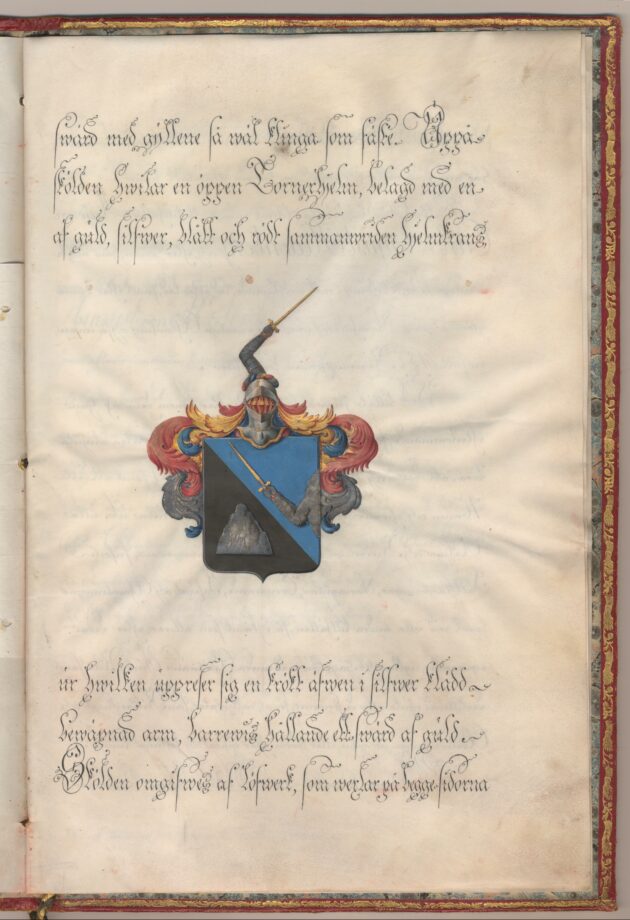 swärd med gÿllene så wäl klinga som fäste. Uppå
skölden hwilar en öppen Tornerhjelm, belagd med en
af guld, silfwer, blått och rödt sammanwriden hjelmkrans,
ur hwilken uppreser sig en krökt äfwen i silfwer klädd
bewäpnad arm, harrewis hållande ett swärd af guld.
Skölden omgifwes af löfwerk, som wexlar på begge sidorna